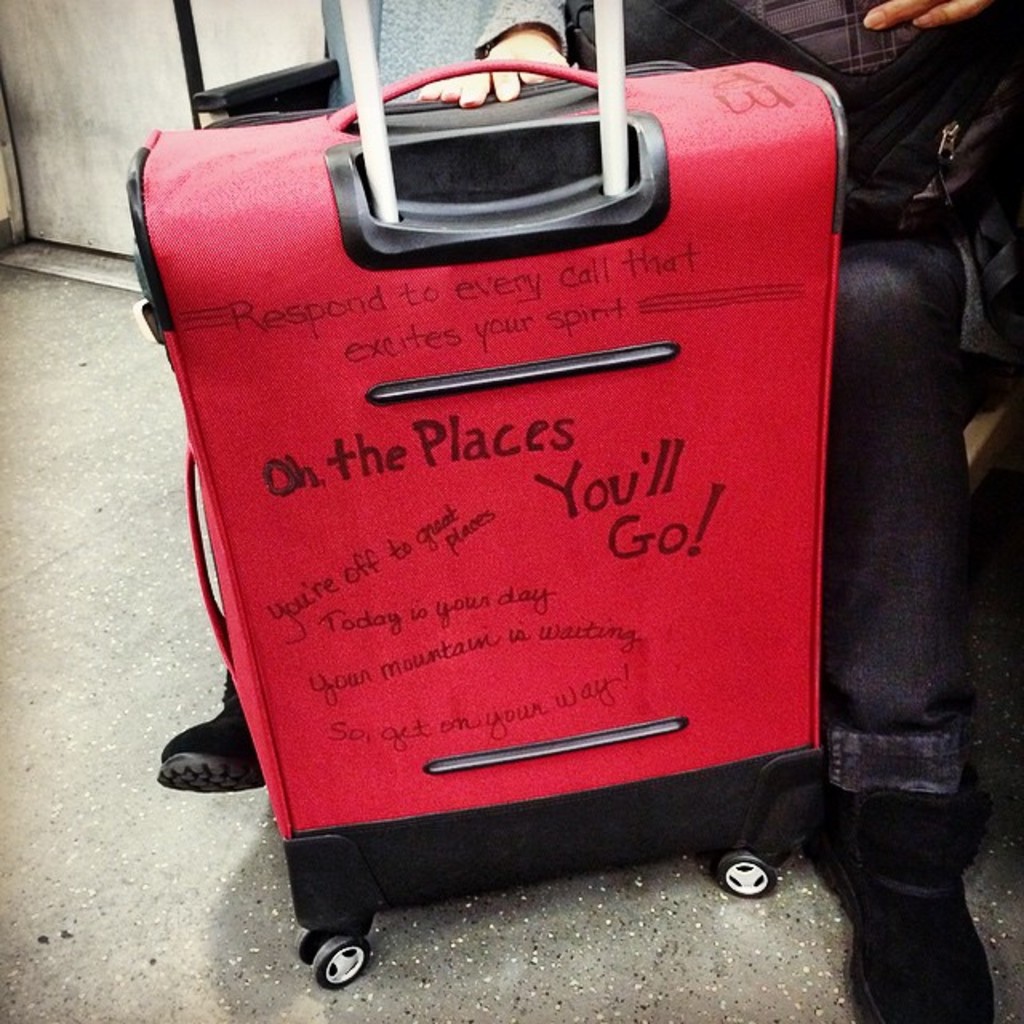 Respond to every call that
excites your spirit
Oh, the Places
You'll
Go!
You're off to great
places
Today is your day
Your mountain is waiting
So, get on your way!